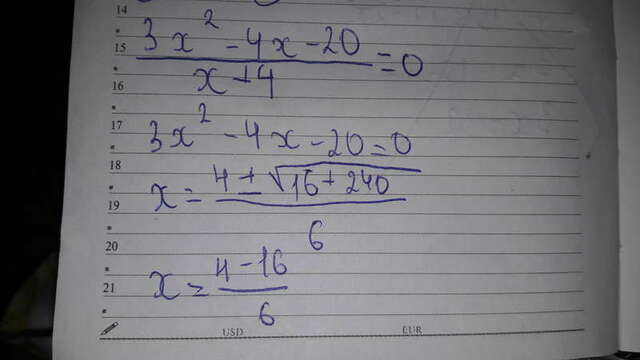 14
15
3x² - 4x - 20
x + 4
= 0
16
17
3x² - 4x - 20 = 0
18
x = 4 ± √16 + 240
6
19
20
x = 4 - 16
6
21
USD EUR